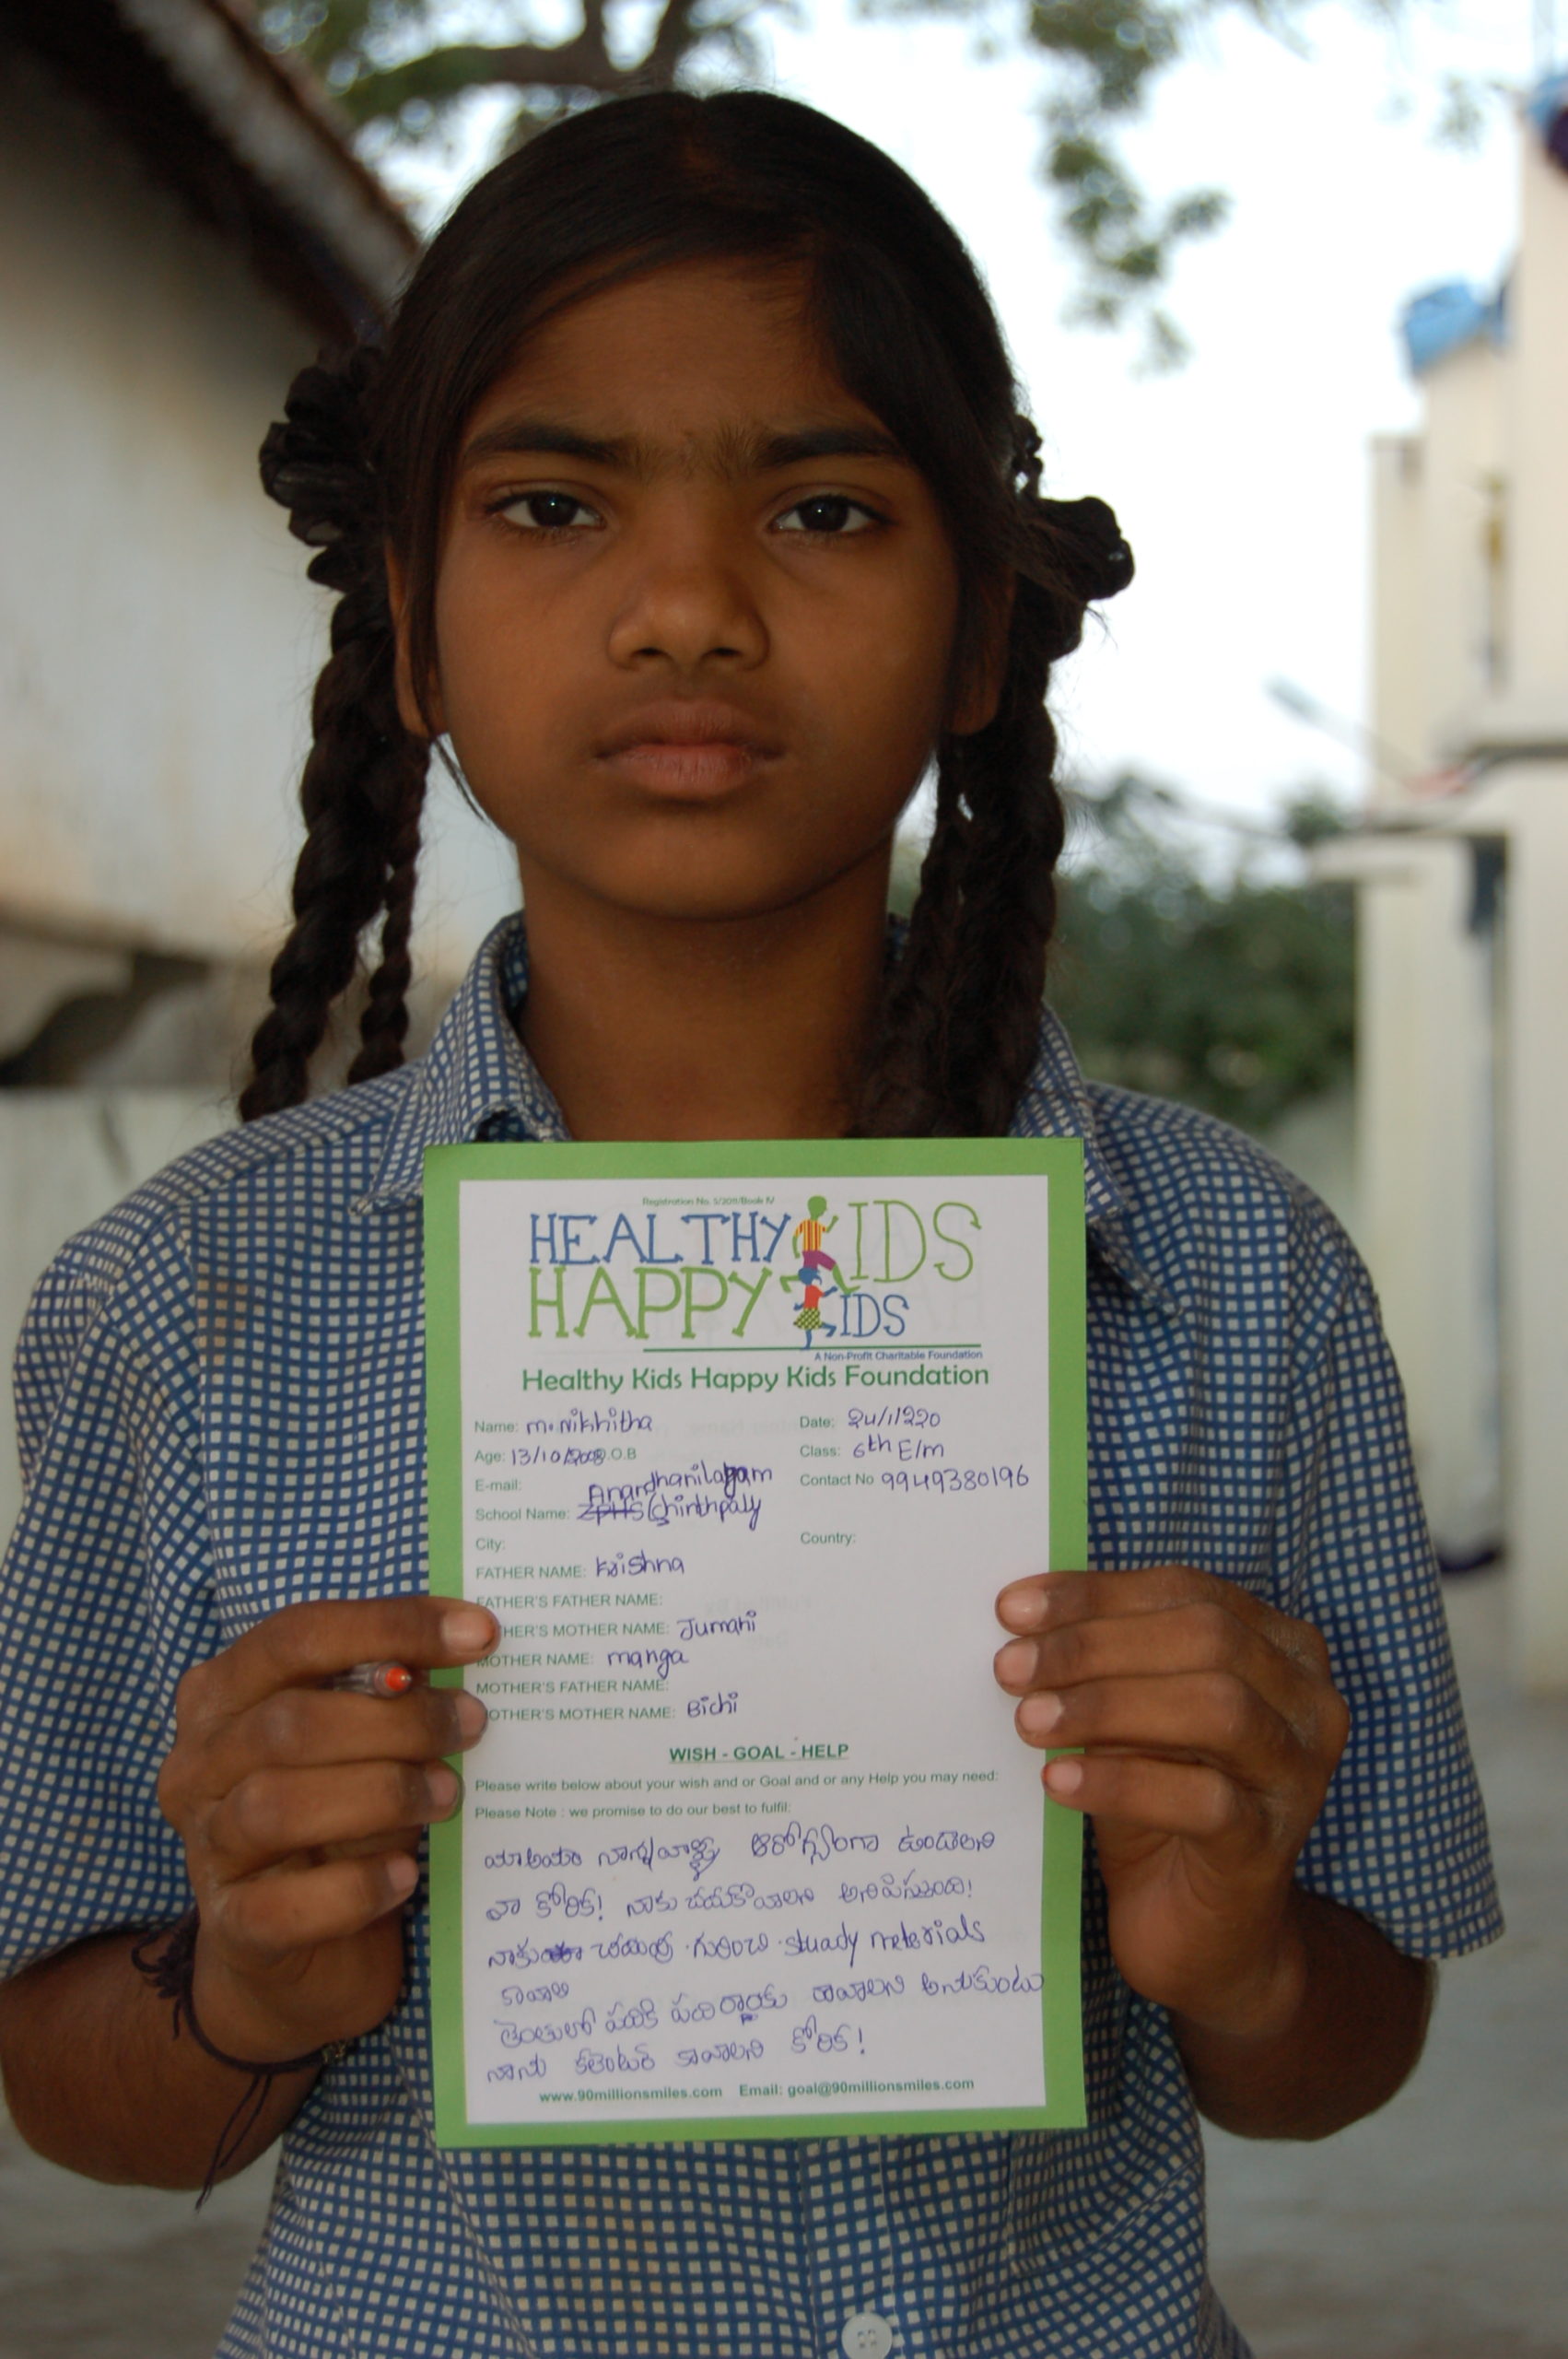 Registration No. 5/2011/Book IV
HEALTHY KIDS
HAPPY KIDS
A Non-Profit Charitable Foundation
Healthy Kids Happy Kids Foundation
Name: M. Nikhitha Date: 24/1/220
Age: 13/10/2008 D.O.B Class: 6th E/m
E-mail: Contact No 9949380196
Anandhanilagam
School Name: ZPHS Chinthpaly
City: Country:
FATHER NAME: Krishna
FATHER'S FATHER NAME:
HER'S MOTHER NAME: Jumani
MOTHER NAME: manga
MOTHER'S FATHER NAME:
OTHER'S MOTHER NAME: Bichi
WISH - GOAL - HELP
Please write below about your wish and or Goal and or any Help you may need:
Please Note : we promise to do our best to fulfil:
మా అమ్మ నాన్న వాళ్ళు ఆరోగ్యంగా ఉండాలని
నా కోరిక! నాకు చదుకోవాలని అనిపిస్తుంది!
నాకు చదువు గురించి study meterials
కావాలి
టెంతులో పదికి పది రావాలని అనుకుంటు
నాను కలెంటర్ కావాలని కోరిక!
www.90millionsmiles.com Email: goal@90millionsmiles.com